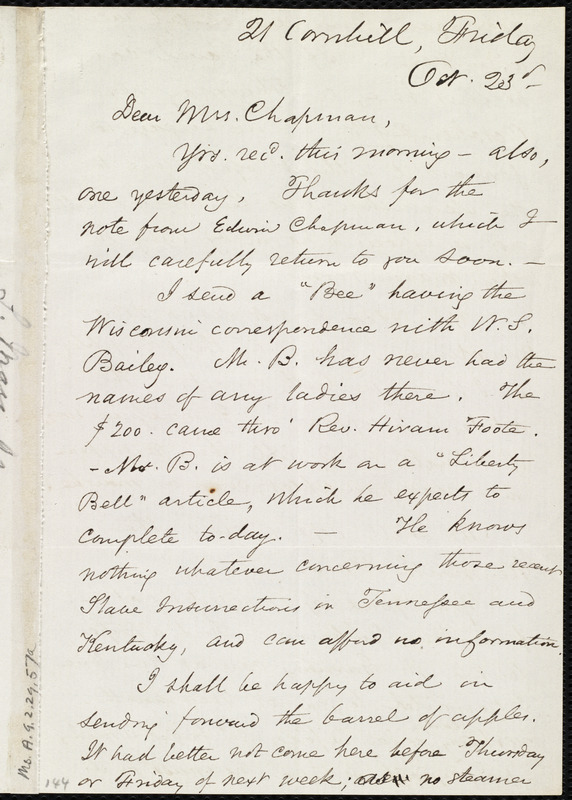 21 Cornhill, Friday
Oct. 23d –
Dear Mrs. Chapman,
Yrs. recd. this morning – also,
one yesterday. Thanks for the
note from Edwin Chapman, which I
will carefully return to you soon. –
I send a "Bee" having the
Wisconsin correspondence with W. S.
Bailey. Mr. B. has never had the
names of any ladies there. The
$200. came thro' Rev. Hiram Foote.
– Mr. B. is at work on a "Liberty
Bell" article, which he expects to
complete to-day. – He knows
nothing whatever concerning those recent
Slave Insurrections in Tennessee and
Kentucky, and can afford no information.
I shall be happy to aid in
sending forward the barrel of apples.
It had better not come here before Thursday
or Friday of next week; no steamer
Ms. A. 9. 2. 29. 57a
144